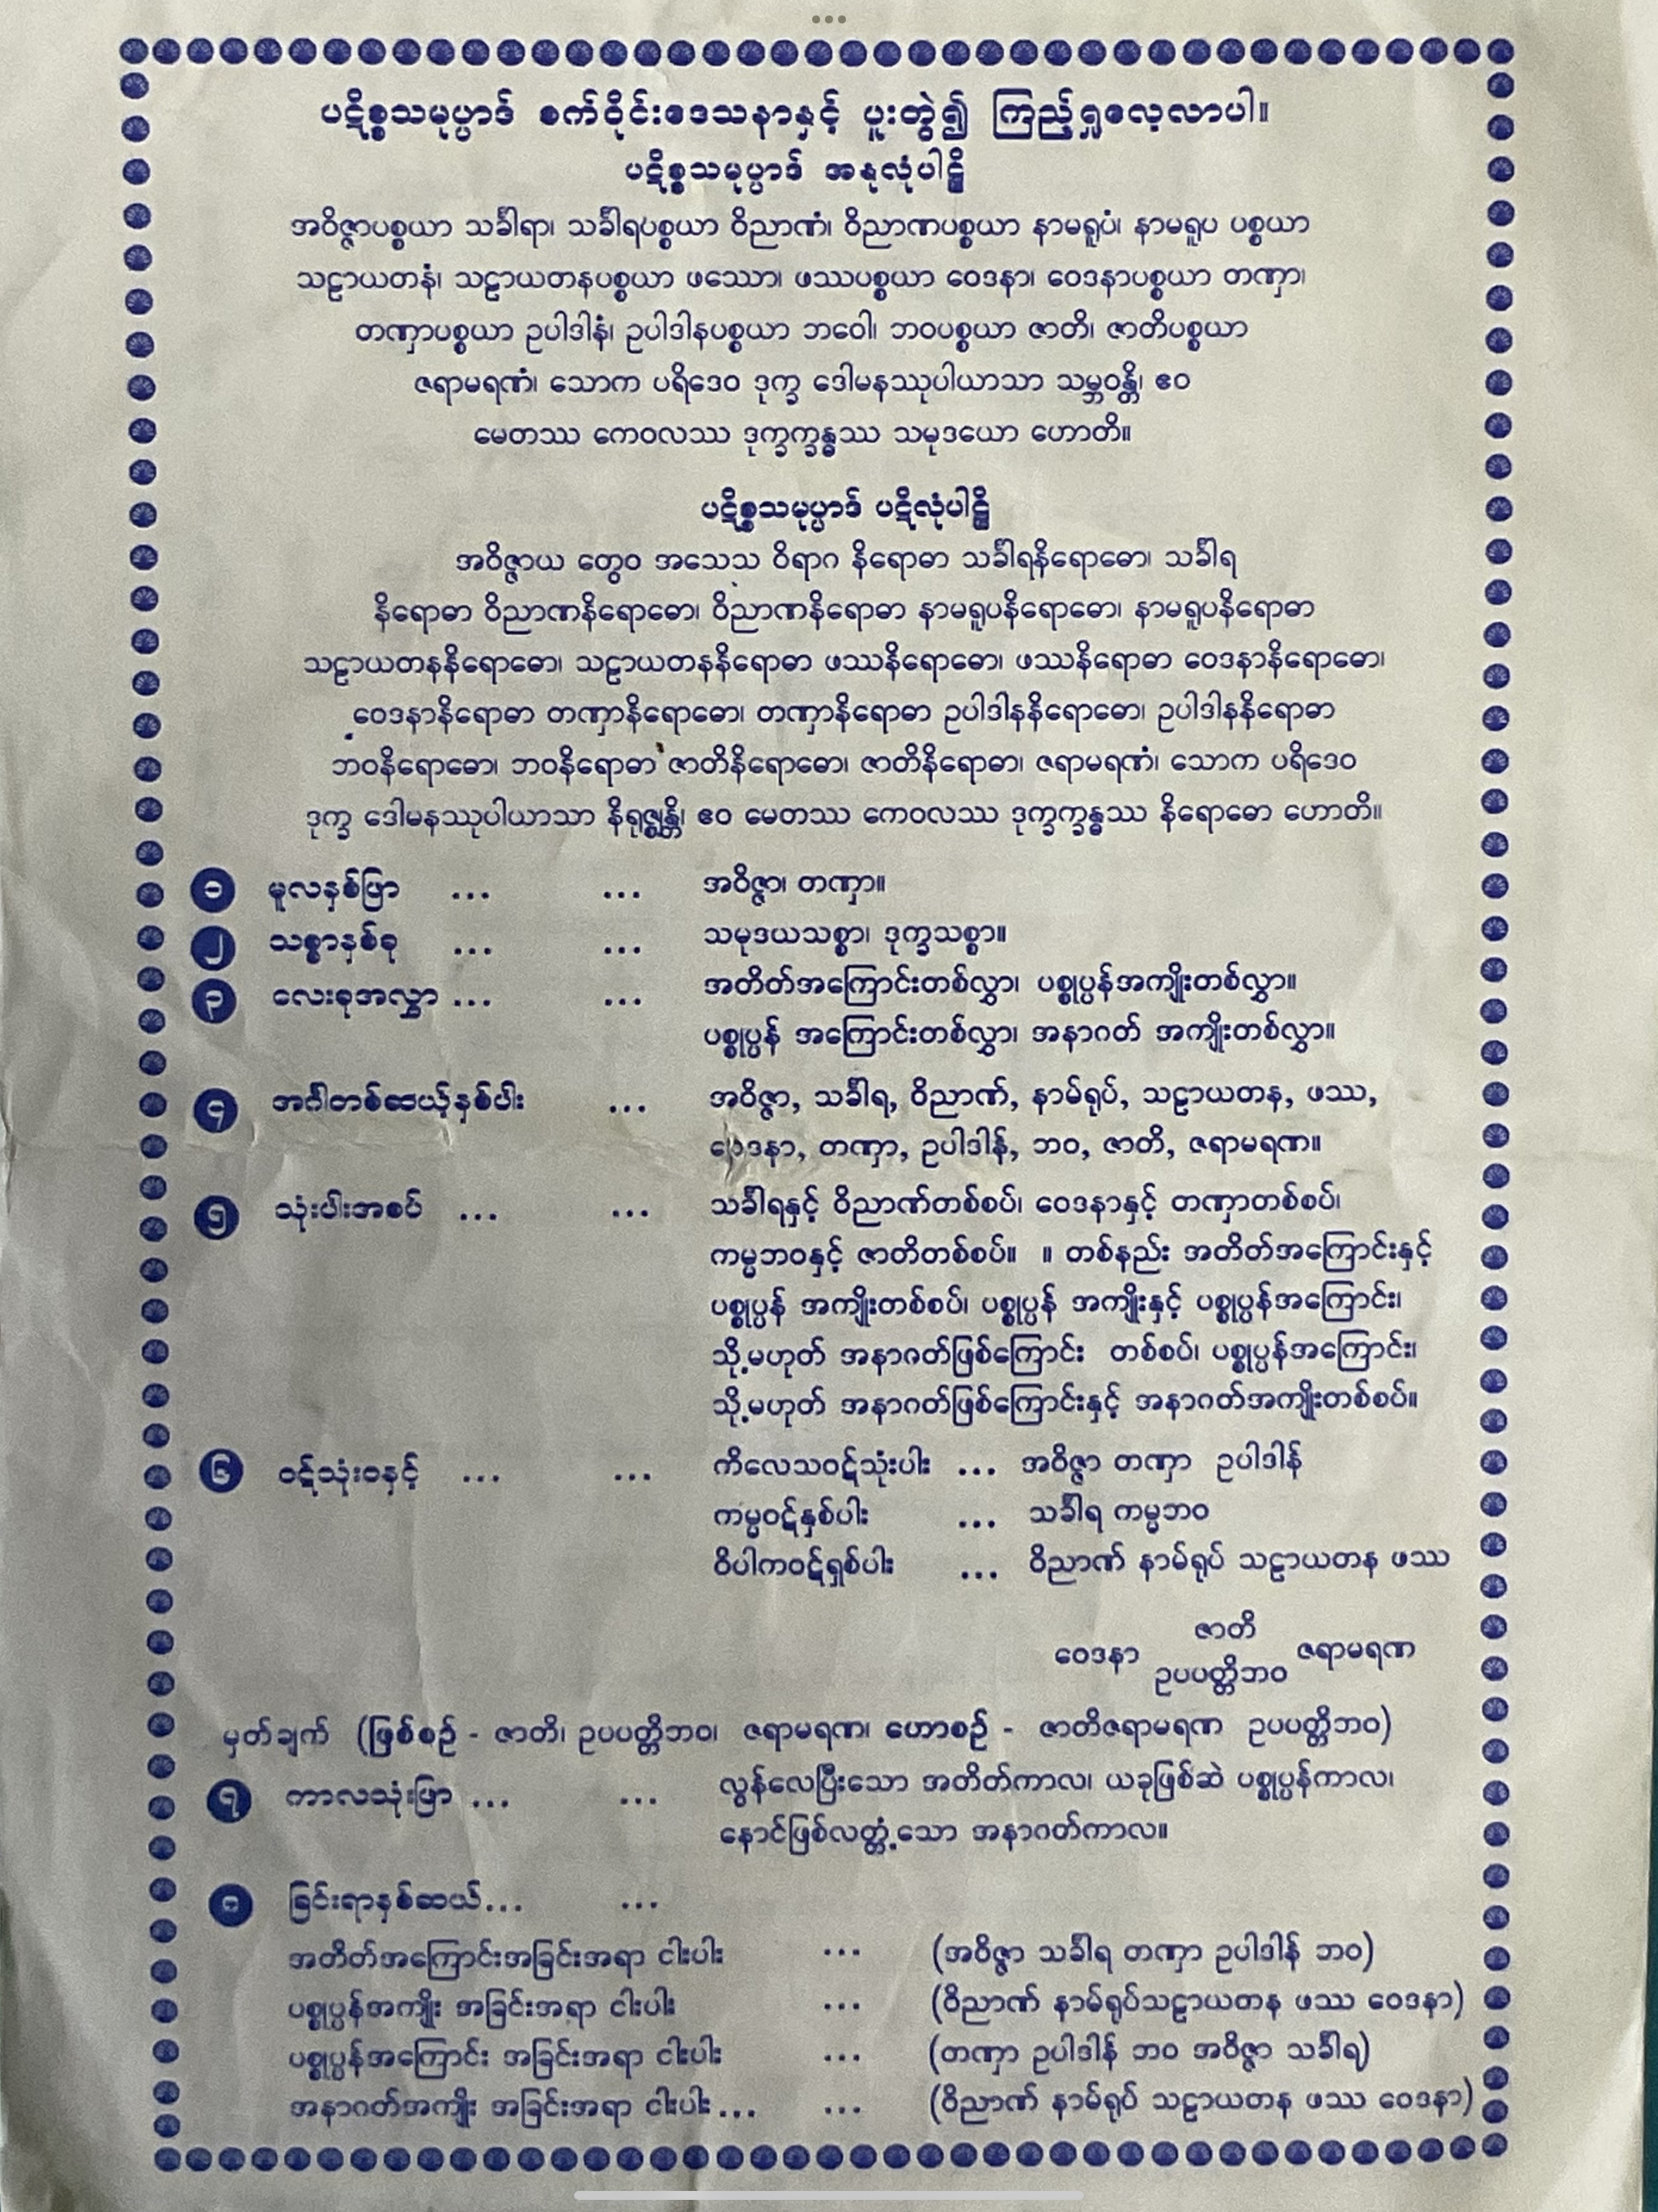 ပဋိစ္စသမုပ္ပာဒ် စက်ဝိုင်းဒေသနာနှင့် ပူးတွဲ၍ ကြည့်ရှုလေ့လာပါ။
ပဋိစ္စသမုပ္ပာဒ် အနုလုံပါဠိ
အဝိဇ္ဇာပစ္စယာ သင်္ခါရာ၊ သင်္ခါရပစ္စယာ ဝိညာဏံ၊ ဝိညာဏပစ္စယာ နာမရူပံ၊ နာမရူပ ပစ္စယာ
သဠာယတနံ၊ သဠာယတနပစ္စယာ ဖဿော၊ ဖဿပစ္စယာ ဝေဒနာ၊ ဝေဒနာပစ္စယာ တဏှာ၊
တဏှာပစ္စယာ ဥပါဒါနံ၊ ဥပါဒါနပစ္စယာ ဘဝေါ၊ ဘဝပစ္စယာ ဇာတိ၊ ဇာတိပစ္စယာ
ဇရာမရဏံ၊ သောက ပရိဒေဝ ဒုက္ခ ဒေါမနဿုပါယာသာ သမ္ဘဝန္တိ၊ ဧဝ
မေတဿ ကေဝလဿ ဒုက္ခက္ခန္ဓဿ သမုဒယော ဟောတိ။
ပဋိစ္စသမုပ္ပာဒ် ပဋိလုံပါဠိ
အဝိဇ္ဇာယ တွေဝ အသေသ ဝိရာဂ နိရောဓာ သင်္ခါရနိရောဓော၊ သင်္ခါရ
နိရောဓာ ဝိညာဏနိရောဓော၊ ဝိညာဏနိရောဓာ နာမရူပနိရောဓော၊ နာမရူပနိရောဓာ
သဠာယတနနိရောဓော၊ သဠာယတနနိရောဓာ ဖဿနိရောဓော၊ ဖဿနိရောဓာ ဝေဒနာနိရောဓော၊
ဝေဒနာနိရောဓာ တဏှာနိရောဓော၊ တဏှာနိရောဓာ ဥပါဒါနနိရောဓော၊ ဥပါဒါနနိရောဓာ
ဘဝနိရောဓော၊ ဘဝနိရောဓာ ဇာတိနိရောဓော၊ ဇာတိနိရောဓာ၊ ဇရာမရဏံ၊ သောက ပရိဒေဝ
ဒုက္ခ ဒေါမနဿုပါယာသာ နိရုဇ္ဈန္တိ၊ ဧဝ မေတဿ ကေဝလဿ ဒုက္ခက္ခန္ဓဿ နိရောဓော ဟောတိ။
၁ မူလနှစ်ဖြာ ... ... အဝိဇ္ဇာ၊ တဏှာ။
၂ သစ္စာနှစ်ခု ... ... သမုဒယသစ္စာ၊ ဒုက္ခသစ္စာ။
၃ လေးခုအလွှာ ... ... အတိတ်အကြောင်းတစ်လွှာ၊ ပစ္စုပ္ပန်အကျိုးတစ်လွှာ။
ပစ္စုပ္ပန် အကြောင်းတစ်လွှာ၊ အနာဂတ် အကျိုးတစ်လွှာ။
၄ အင်္ဂါတစ်ဆယ့်နှစ်ပါး ... အဝိဇ္ဇာ, သင်္ခါရ, ဝိညာဏ်, နာမ်ရုပ်, သဠာယတန, ဖဿ,
ဝေဒနာ, တဏှာ, ဥပါဒါန်, ဘဝ, ဇာတိ, ဇရာမရဏ။
၅ သုံးပါးအစပ် ... ... သင်္ခါရနှင့် ဝိညာဏ်တစ်စပ်၊ ဝေဒနာနှင့် တဏှာတစ်စပ်၊
ကမ္မဘဝနှင့် ဇာတိတစ်စပ်။ ။ တစ်နည်း အတိတ်အကြောင်းနှင့်
ပစ္စုပ္ပန် အကျိုးတစ်စပ်၊ ပစ္စုပ္ပန် အကျိုးနှင့် ပစ္စုပ္ပန်အကြောင်း၊
သို့မဟုတ် အနာဂတ်ဖြစ်ကြောင်း တစ်စပ်၊ ပစ္စုပ္ပန်အကြောင်း၊
သို့မဟုတ် အနာဂတ်ဖြစ်ကြောင်းနှင့် အနာဂတ်အကျိုးတစ်စပ်။
၆ ဝဋ်သုံးဝနှင့် ... ... ကိလေသဝဋ်သုံးပါး ... အဝိဇ္ဇာ တဏှာ ဥပါဒါန်
ကမ္မဝဋ်နှစ်ပါး ... သင်္ခါရ ကမ္မဘဝ
ဝိပါကဝဋ်ရှစ်ပါး ... ဝိညာဏ် နာမ်ရုပ် သဠာယတန ဖဿ
ဇာတိ
ဝေဒနာ ဇရာမရဏ
ဥပပတ္တိဘဝ
မှတ်ချက် (ဖြစ်စဉ် - ဇာတိ၊ ဥပပတ္တိဘဝ၊ ဇရာမရဏ၊ ဟောစဉ် - ဇာတိဇရာမရဏ ဥပပတ္တိဘဝ)
၇ ကာလသုံးဖြာ ... ... လွန်လေပြီးသော အတိတ်ကာလ၊ ယခုဖြစ်ဆဲ ပစ္စုပ္ပန်ကာလ၊
နောင်ဖြစ်လတ္တံ့သော အနာဂတ်ကာလ။
၈ ခြင်းရာနှစ်ဆယ်... ...
အတိတ်အကြောင်းအခြင်းအရာ ငါးပါး ... (အဝိဇ္ဇာ သင်္ခါရ တဏှာ ဥပါဒါန် ဘဝ)
ပစ္စုပ္ပန်အကျိုး အခြင်းအရာ ငါးပါး ... (ဝိညာဏ် နာမ်ရုပ်သဠာယတန ဖဿ ဝေဒနာ)
ပစ္စုပ္ပန်အကြောင်း အခြင်းအရာ ငါးပါး ... (တဏှာ ဥပါဒါန် ဘဝ အဝိဇ္ဇာ သင်္ခါရ)
အနာဂတ်အကျိုး အခြင်းအရာ ငါးပါး... ... (ဝိညာဏ် နာမ်ရုပ် သဠာယတန ဖဿ ဝေဒနာ)